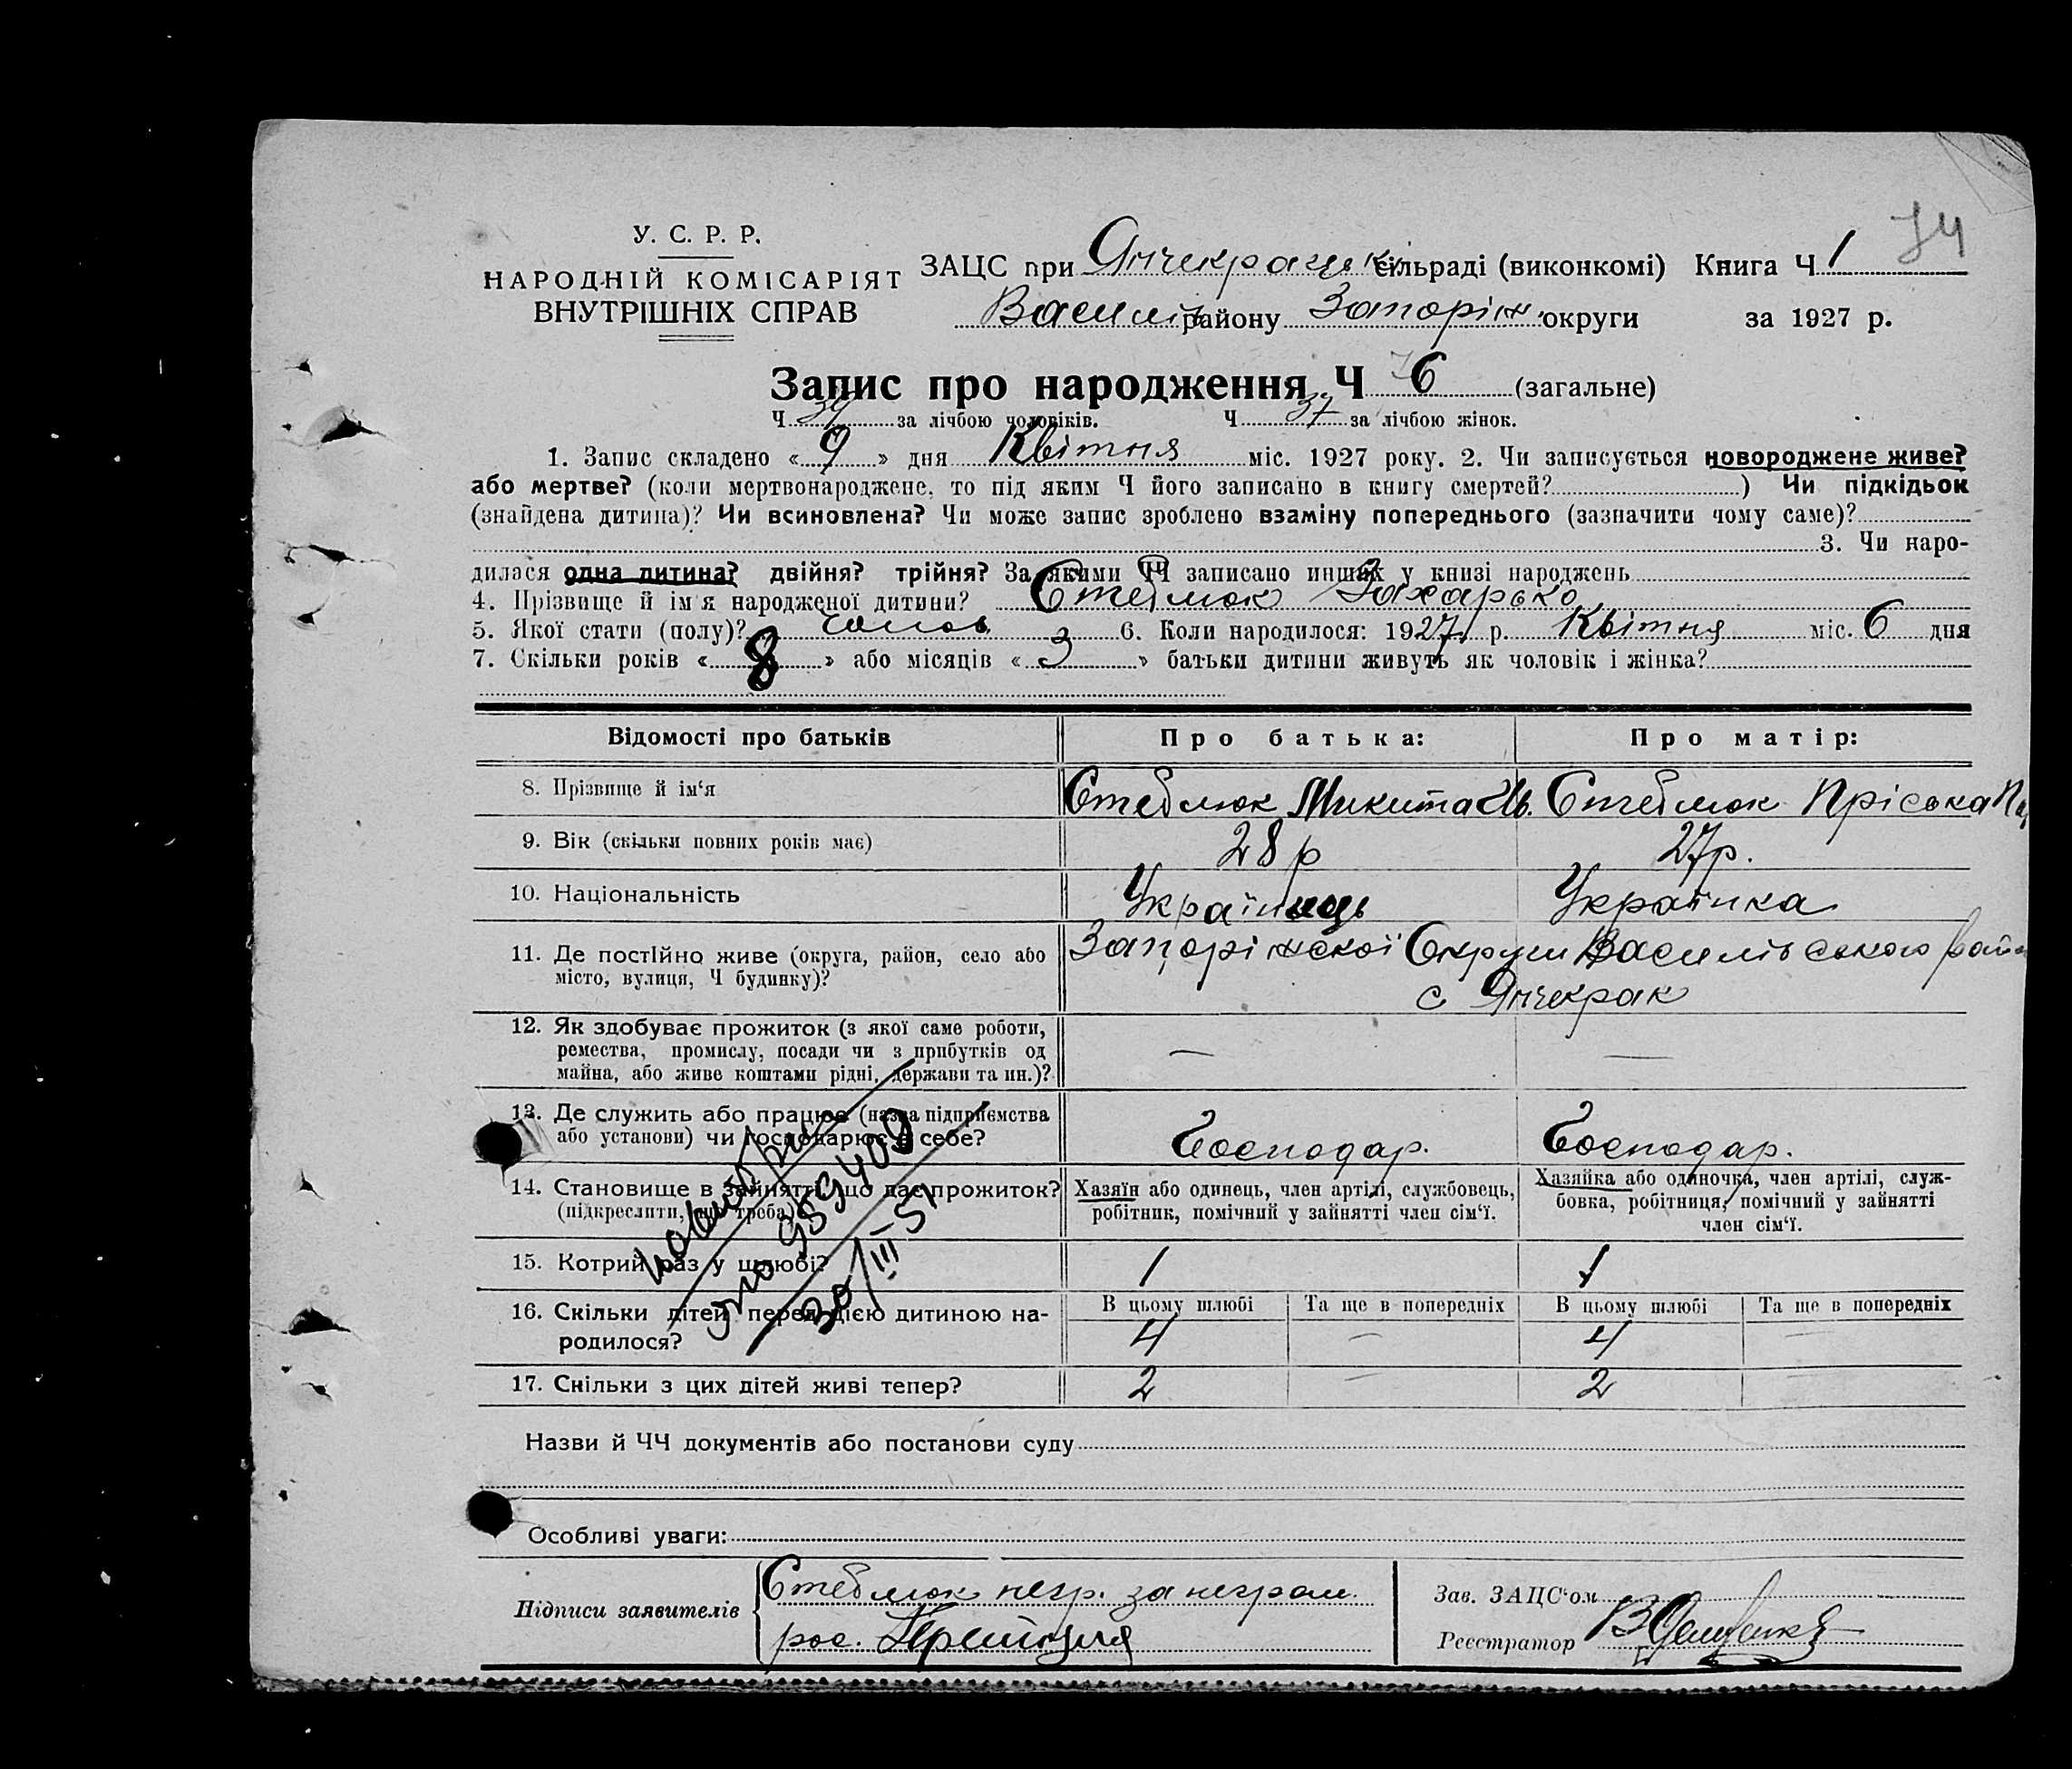 74
У. С. Р. Р.
НАРОДНІЙ КОМІСАРІЯТ
ВНУТРІШНІХ СПРАВ
ЗАЦС при Янчекрацьк сільраді (виконкомі) Книга Ч 1
Василів району Запоріж. округи за 1927 р.
Запис про народження Ч 76 (загальне)
Ч 39 за лічбою чоловіків. Ч 37 за лічбою жінок.
1. Запис складено « 9 » дня Квітня міс. 1927 року. 2. Чи записується новороджене живе?
або мертве? (коли мертвонароджене, то під яким Ч його записано в книгу смертей? ) Чи підкідьок
(знайдена дитина)? Чи всиновлена? Чи може запис зроблено взаміну попереднього (зазначити чому саме)?
3. Чи наро-
дилася одна дитина? двійня? трійня? За якими ЧЧ записано инших у книзі народжень
4. Прізвище й ім'я народженої дитини? Стеблюк Захарько
5. Якої стати (полу)? чолов. 6. Коли народилося: 1927 р. Квітня міс. 6 дня
7. Скільки років « 8 » або місяців « 3 » батьки дитини живуть як чоловік і жінка?
Відомості про батьків Про батька: Про матір:
8. Прізвище й ім'я Стеблюк Микита Ів. Стеблюк Пріська
9. Вік (скільки повних років має) 28 р 27 р.
10. Національність Українець Українка
11. Де постійно живе (округа, район, село або Запоріжської Округи Василівського рай
місто, вулиця, Ч будинку)? с Янчекрак
12. Як здобуває прожиток (з якої саме роботи,
ремества, промислу, посади чи з прибутків од — —
майна, або живе коштами рідні, держави та ин.)?
13. Де служить або працює (назва підприємства
або установи) чи господарює в себе? Господар. Господар.
14. Становище в зайнятті, що дає прожиток? Хазяїн або одинець, член артілі, службовець, Хазяйка або одиночка, член артілі, служ-
(підкреслити, що треба) робітник, помічний у зайнятті член сім'ї. бовка, робітниця, помічний у зайнятті
член сім'ї.
15. Котрий раз у шлюбі? 1 1
16. Скільки дітей перед цією дитиною на- В цьому шлюбі Та ще в попередніх В цьому шлюбі Та ще в попередніх
родилося? 4 — 4 —
17. Скільки з цих дітей живі тепер? 2 — 2 —
989409
30/III 51
Назви й ЧЧ документів або постанови суду
Особливі уваги:
Підписи заявителів Стеблюк негр. за неграм.
рос.
Зав. ЗАЦС'ом
Реєстратор